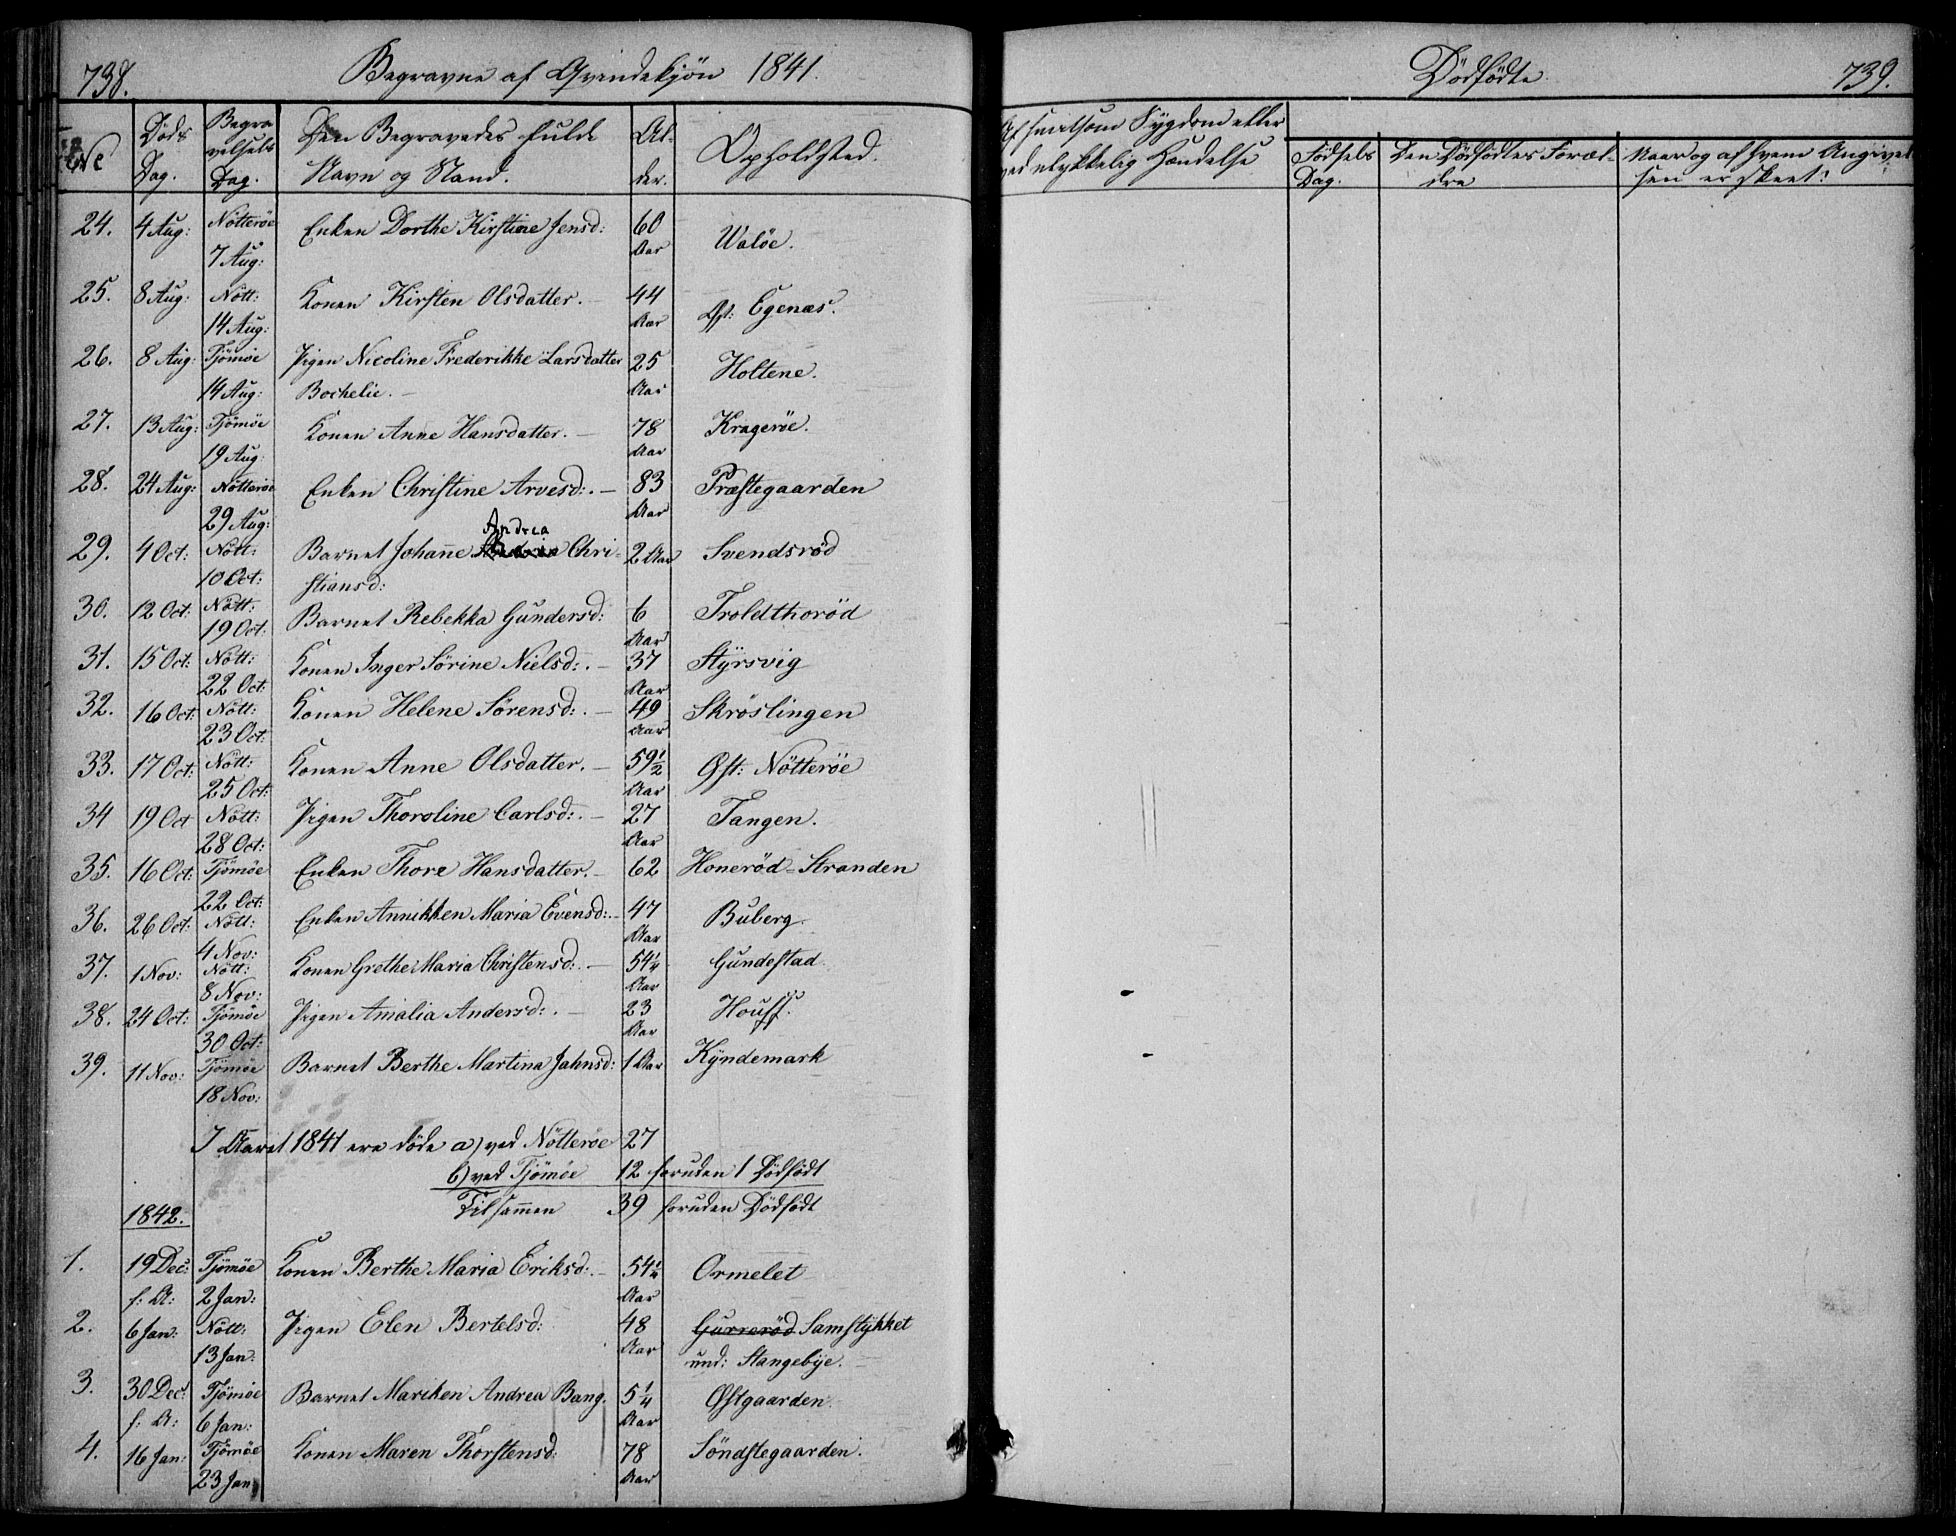 738. Begravne af Qvindekjön 1841.
No Döds Dag. Begravelsens Dag. Den Begravedes fulde Navn og Stand. Alder. Opholdsted.
24. 4 Aug: Nötteröe 7 Aug: Enken Dorthe Kirstine Jensd: 60 Aar Valöe.
25. 8 Aug: Nött: 14 Aug: Konen Kirsten Olsdatter. – 44 Aar Egenæs.
26. 8 Aug: Tjömöe 14 Aug: Pigen Nicoline Frederikke Larsdatter Bochelie. – 25 Aar Holtene.
27. 13 Aug: Tjömöe 19 Aug: Konen Anne Hansdatter. – 78 Aar Kragerøe.
28. 24 Aug: Nötteröe 29 Aug: Enken Christine Arvesd:. – 83 Aar Præstegaarden
29. 4 Oct: Nött: 10 Oct: Barnet Johanne Andrea Christiansd: 2 Aar Svendsrød
30. 12 Oct: Nött: 19 Oct: Barnet Rebekka Gundersd: 6 Aar Troldthoröd
31. 15 Oct: Nött: 22 Oct: Konen Inger Sörine Nielsd:. – 37 Aar Styrsvig
32. 16 Oct: Nött: 23 Oct: Konen Helene Sörensd:. – 49 Aar Skrøslingen
33. 17 Oct: Nött: 25 Oct: Konen Anne Olsdatter. – 59½ Aar Øst: Nötteröe
34 19 Oct Nött: 28 Oct: Pigen Thoroline Carlsd:. – 27 Aar Tangen.
35. 16 Oct: Tjömöe 22 Oct: Enken Thore Hansdatter. – 62 Honeröd-Stranden
36. 26 Oct: Nött: 4 Nov: Enken Annikken Maria Evensd:. – 47 Aar Buberg.
37. 1 Nov: Nött: 8 Nov: Konen Grethe Maria Christensd:. – 54¼ Aar Gundestad
38. 24 Oct: Tjömöe 30 Oct: Pigen Amalia Andersd:. – 23 Aar Houff.
39. 11 Nov: Tjömöe 18 Nov: Barnet Berthe Martina Jahnsd: 1 Aar Kyndemark
I Aaret 1841 ere döde a) ved Nötteröe 27
b) ved Tjömöe 12 foruden 1 Dödfödt
Tilsammen 39 foruden Dödfödt
1842.
1. 19 Dec: f: A: Tjömöe 2 Jan: Konen Berthe Maria Eriksd:. – 54¼ Aar Ormelet
2. 6 Jan: Nött: 13 Jan: Pigen Elen Bertelsd: 48 Aar Gurreröd Samstykket und: Stangebye. –
3. 30 Dec: f: A: Tjömöe 6 Jan: Barnet Mariken Andrea Bang. 5¼ Aar Østgaarden.
4. 16 Jan: Tjömöe 23 Jan: Konen Maren Thorstensd: 78 Aar Söndstegaarden.
Dödfödte 739.
Af hvilken Sygdom eller ved ulykkelig Hændelse
Födsels Dag. Den Dödfödtes Forældre Naar og af hvem Angivelsen er skeet?